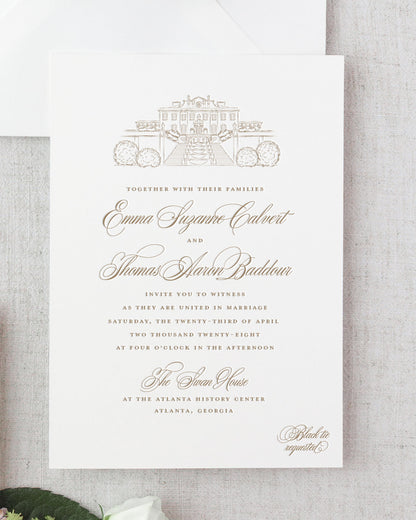 TOGETHER WITH THEIR FAMILIES
Emma Suzanne Calvert
AND
Thomas Aaron Baddour
INVITE YOU TO WITNESS
AS THEY ARE UNITED IN MARRIAGE
SATURDAY, THE TWENTY-THIRD OF APRIL
TWO THOUSAND TWENTY-EIGHT
AT FOUR O'CLOCK IN THE AFTERNOON
The Swan House
AT THE ATLANTA HISTORY CENTER
ATLANTA, GEORGIA
Black tie
requested